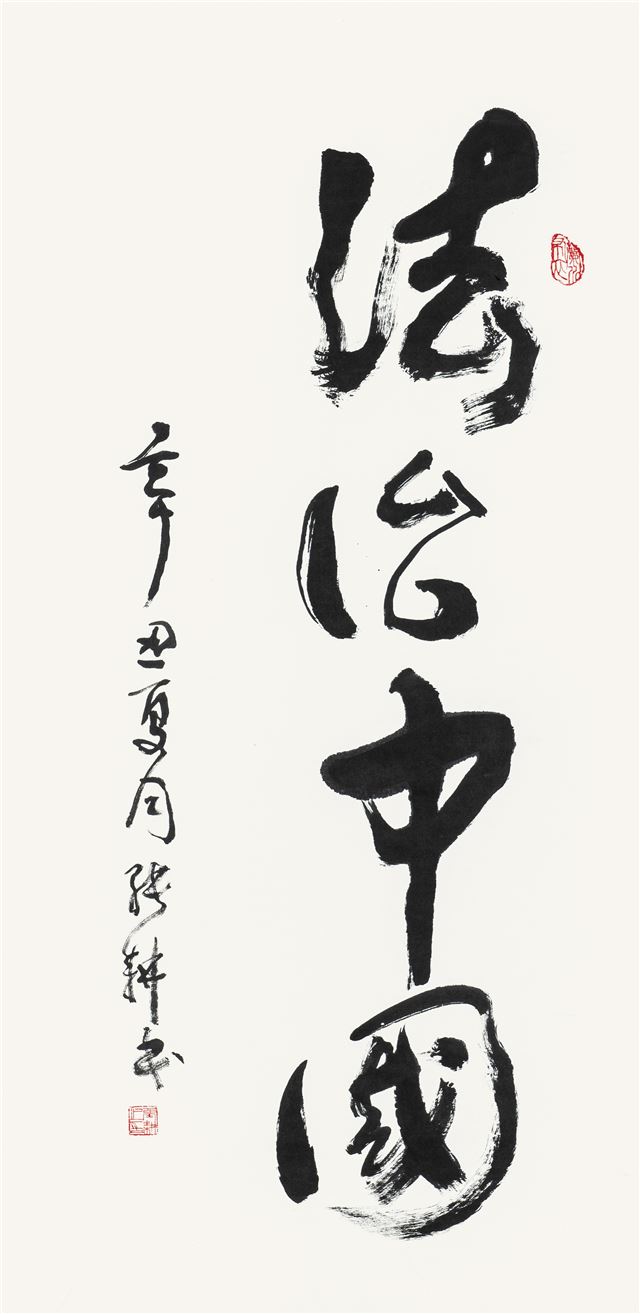 法治中國
辛丑夏月張耕书